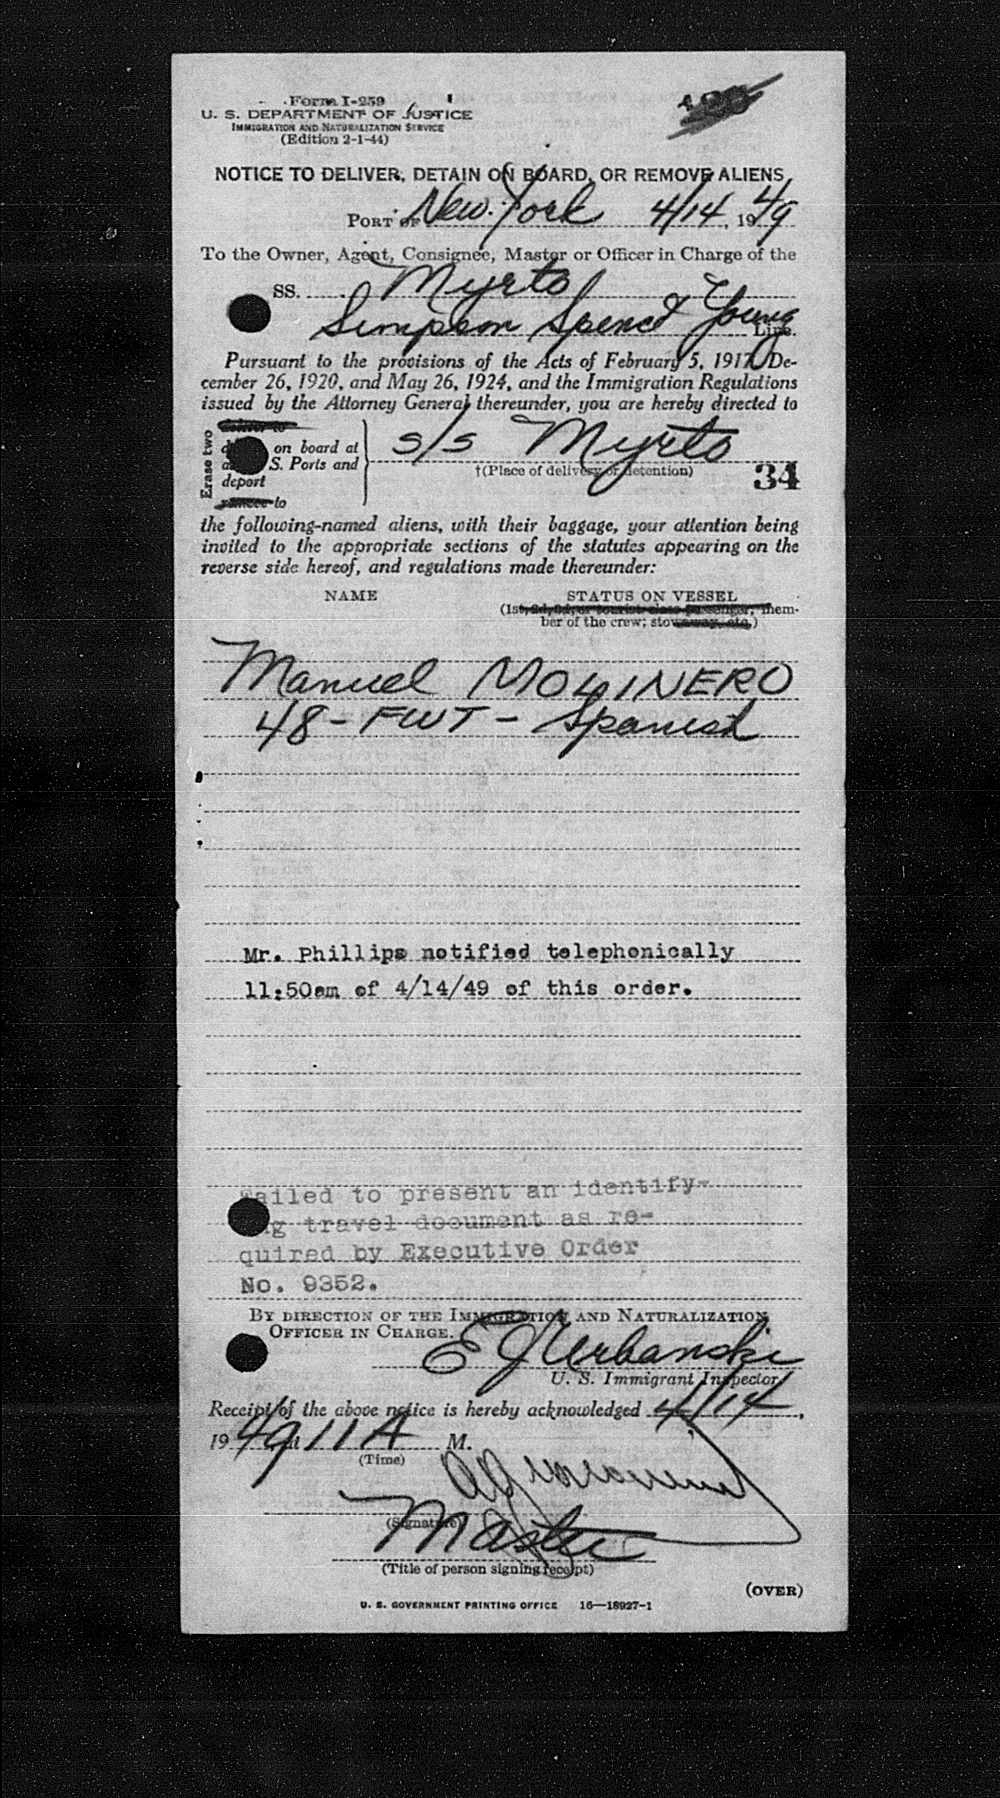 Form I-259
U. S. DEPARTMENT OF JUSTICE
IMMIGRATION AND NATURALIZATION SERVICE
(Edition 2-1-44)
NOTICE TO DELIVER, DETAIN ON BOARD, OR REMOVE ALIENS
PORT OF New York 4/14, 1949
To the Owner, Agent, Consignee, Master or Officer in Charge of the
SS. Myrto
Simpson Spence & Young Line.
Pursuant to the provisions of the Acts of February 5, 1917, De-
cember 26, 1920, and May 26, 1924, and the Immigration Regulations
issued by the Attorney General thereunder, you are hereby directed to
Erase two
deliver to
on board at
S. Ports and
deport
remove to
s/s Myrto
†(Place of delivery or detention)
34
the following-named aliens, with their baggage, your attention being
invited to the appropriate sections of the statutes appearing on the
reverse side hereof, and regulations made thereunder:
NAME STATUS ON VESSEL
(1st, 2d, 3d, or tourist class passenger; mem-
ber of the crew; stowaway, etc.)
Manuel MOLINERO
48 - FWT - Spanish
Mr. Phillips notified telephonically
11:50am of 4/14/49 of this order.
Failed to present an identify-
g travel document as re-
quired by Executive Order
No. 9352.
BY DIRECTION OF THE IMMIGRATION AND NATURALIZATION
OFFICER IN CHARGE.
E J Urbanski
U. S. Immigrant Inspector.
Receipt of the above notice is hereby acknowledged 4/14,
1949 at 11 A M.
(Time)
(Signature)
Master
(Title of person signing receipt)
(OVER)
U. S. GOVERNMENT PRINTING OFFICE 16—18927-1